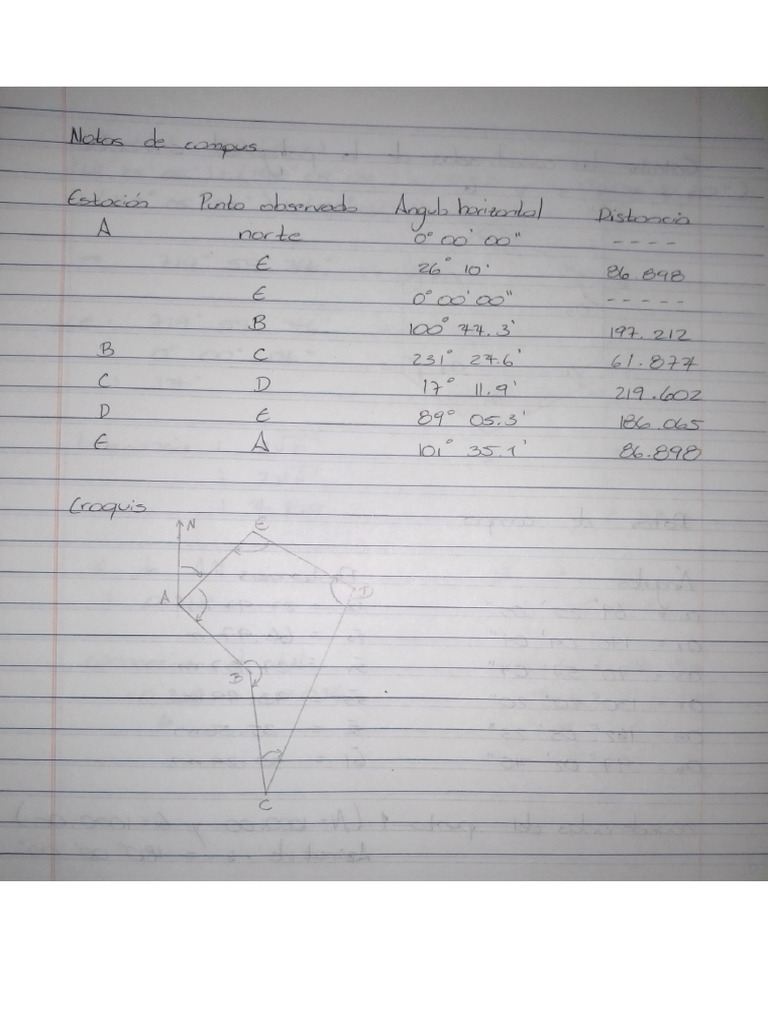 Notas de campus
Estación Punto observado Angulo horizontal Distancia
A norte 0° 00' 00" ----
E 26° 10' 86.898
E 0° 00' 00" -----
B 100° 44.3' 197.212
B C 231° 24.6' 61.877
C D 17° 11.9' 219.602
D E 89° 05.3' 186.065
E A 101° 35.1' 86.898
Croquis
N
E
A
D
B
C